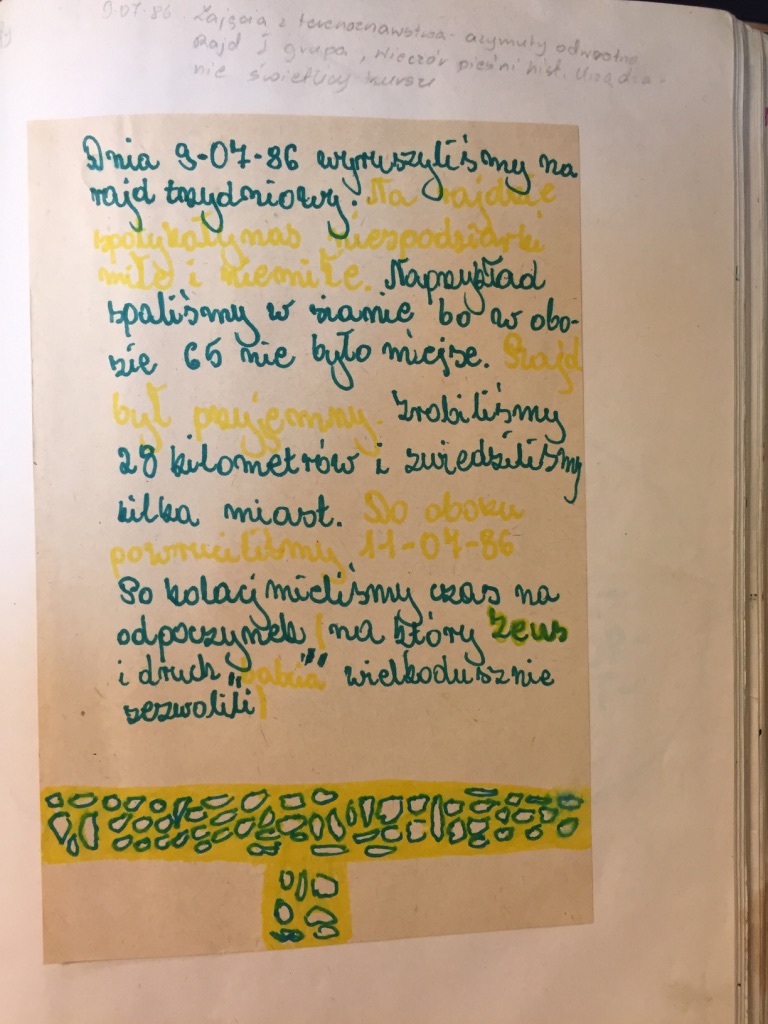 9.07.86. Zajęcia z terenoznawstwa - azymuty odwrotne
Rajd I grupa, Wieczór pieśni hist. Urządza-
nie świetlicy kursu
Dnia 9-07-86 wyruszyliśmy na
rajd trzydniowy. Na rajdzie
spotykały nas niespodzianki
miłe i niemiłe. Naprzykład
spaliśmy w sianie bo w obo-
zie 65 nie było miejsc. Rajd
był przyjemny. Zrobiliśmy
28 kilometrów i zwiedziliśmy
kilka miast. Do obozu
powruciliśmy 11-07-86
Po kolacj mieliśmy czas na
odpoczynek (na który Zeus
i druch „babcia" wielkodusznie
zezwolili)